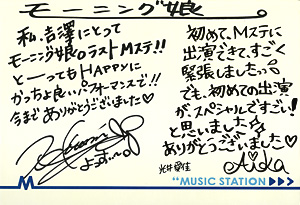 モーニング娘。
私、吉澤にとって
モーニング娘。ラストMステ!!
とーってもHAPPYに
かっちょ良いパフォーマンスで!!
今まで ありがとうございました♡
よっすぃ〜。
初めて、Mステに
出演できて、すごく
緊張しましたっ。
でも、初めての出演
がスペシャルですごい!
と思いました☆
ありがとうございました♡
光井愛佳
Aika
M
"MUSIC STATION